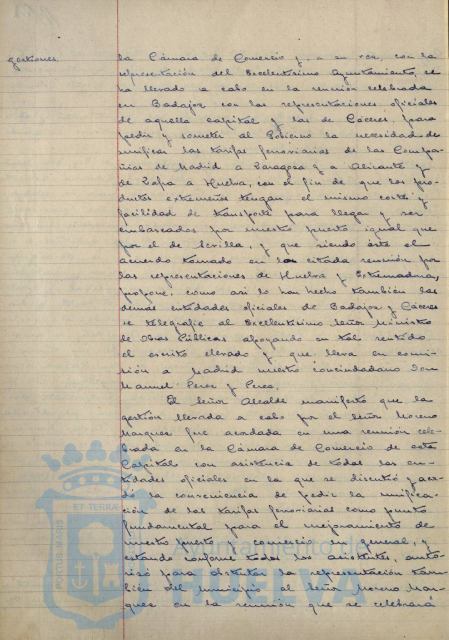 gestiones
la Cámara de Comercio y, a su vez, con la
representación del Excelentísimo Ayuntamiento, se
ha llevado a cabo en la reunión celebrada
en Badajoz con las representaciones oficiales
de aquella capital y las de Cáceres, para
pedir y someter al Gobierno la necesidad de
unificar las tarifas ferroviarias de las Compa-
ñías de Madrid a Zaragoza y a Alicante y
de Zafra a Huelva, con el fin de que los pro-
ductos extremeños tengan el mismo coste y
facilidad de transporte para llegar y ser
embarcados por nuestro puerto igual que
por el de Sevilla, y que siendo éste el
acuerdo tomado en la citada reunión por
las representaciones de Huelva y Extremadura,
propone, como así lo han hecho también las
demás entidades oficiales de Badajoz y Cáceres
se telegrafíe al Excelentísimo Señor Ministro
de Obras Públicas apoyando en tal sentido
el escrito elevado y que lleva en comi-
sión a Madrid nuestro conciudadano Don
Manuel Perez y Perez.
El Señor Alcalde manifestó que la
gestión llevada a cabo por el Señor Moreno
Marquez fue acordada en una reunión cele-
brada en la Cámara de Comercio de esta
Capital con asistencia de todas las en-
tidades oficiales en la que se discutió y acor-
dó la conveniencia de pedir la unifica-
ción de las tarifas ferroviarias como punto
fundamental para el mejoramiento de
nuestro puerto y comercio en general, y
estando conforme todos los asistentes, auto-
rizó para ostentar la representación tam-
bién del municipio al Señor Moreno Mar-
quez en la reunión que se celebrará
PORTUS MARIS
ET TERRA
Ayuntamiento de
HUELVA